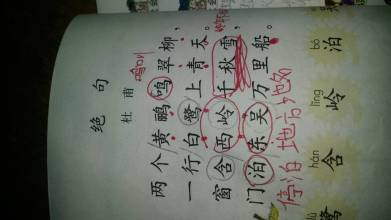 绝句
杜甫
鸣叫
两个黄鹂鸣翠柳，
一行白鹭上青天。
窗含西岭千秋雪，
门泊东吴万里船。
停泊 地方 地名
hán lǐng bó
鹭 含 岭 泊